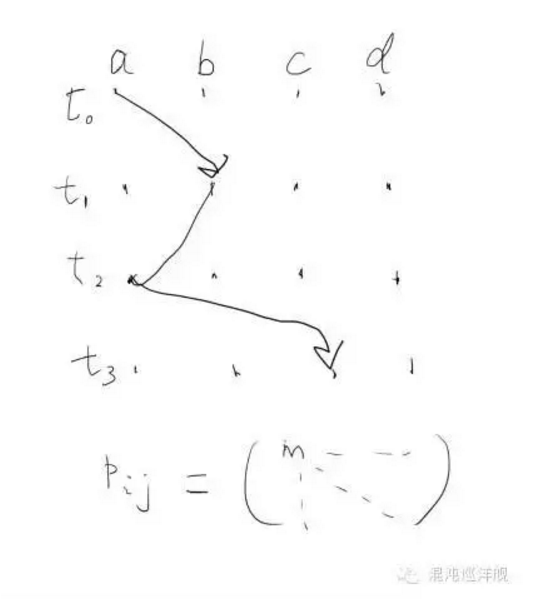 a b c d
t₀
t₁
t₂
t₃
Pij = ( m )
混沌巡洋舰